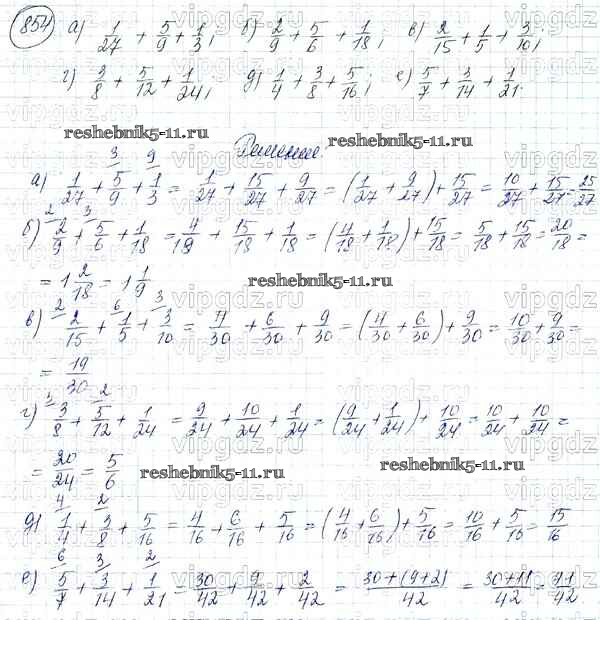 854 а) 1/27 + 5/9 + 1/3; б) 2/9 + 5/6 + 1/18; в) 2/15 + 1/5 + 3/10;
г) 3/8 + 5/12 + 1/24; д) 1/4 + 3/8 + 5/16; е) 5/7 + 3/14 + 1/21.
reshebnik5-11.ru Решение. reshebnik5-11.ru
3 9
а) 1/27 + 5/9 + 1/3 = 1/27 + 15/27 + 9/27 = (1/27 + 9/27) + 15/27 = 10/27 + 15/27 = 25/27
2 3
б) 2/9 + 5/6 + 1/18 = 4/18 + 15/18 + 1/18 = (4/18 + 1/18) + 15/18 = 5/18 + 15/18 = 20/18 =
= 1 2/18 = 1 1/9 reshebnik5-11.ru
2 6 3
в) 2/15 + 1/5 + 3/10 = 4/30 + 6/30 + 9/30 = (4/30 + 6/30) + 9/30 = 10/30 + 9/30 =
= 19/30
3 2
г) 3/8 + 5/12 + 1/24 = 9/24 + 10/24 + 1/24 = (9/24 + 1/24) + 10/24 = 10/24 + 10/24 =
= 20/24 = 5/6 reshebnik5-11.ru reshebnik5-11.ru
4 2
д) 1/4 + 3/8 + 5/16 = 4/16 + 6/16 + 5/16 = (4/16 + 6/16) + 5/16 = 10/16 + 5/16 = 15/16
6 3 2
е) 5/7 + 3/14 + 1/21 = 30/42 + 9/42 + 2/42 = 30+(9+2)/42 = 30+11/42 = 41/42.
vipgdz.ru